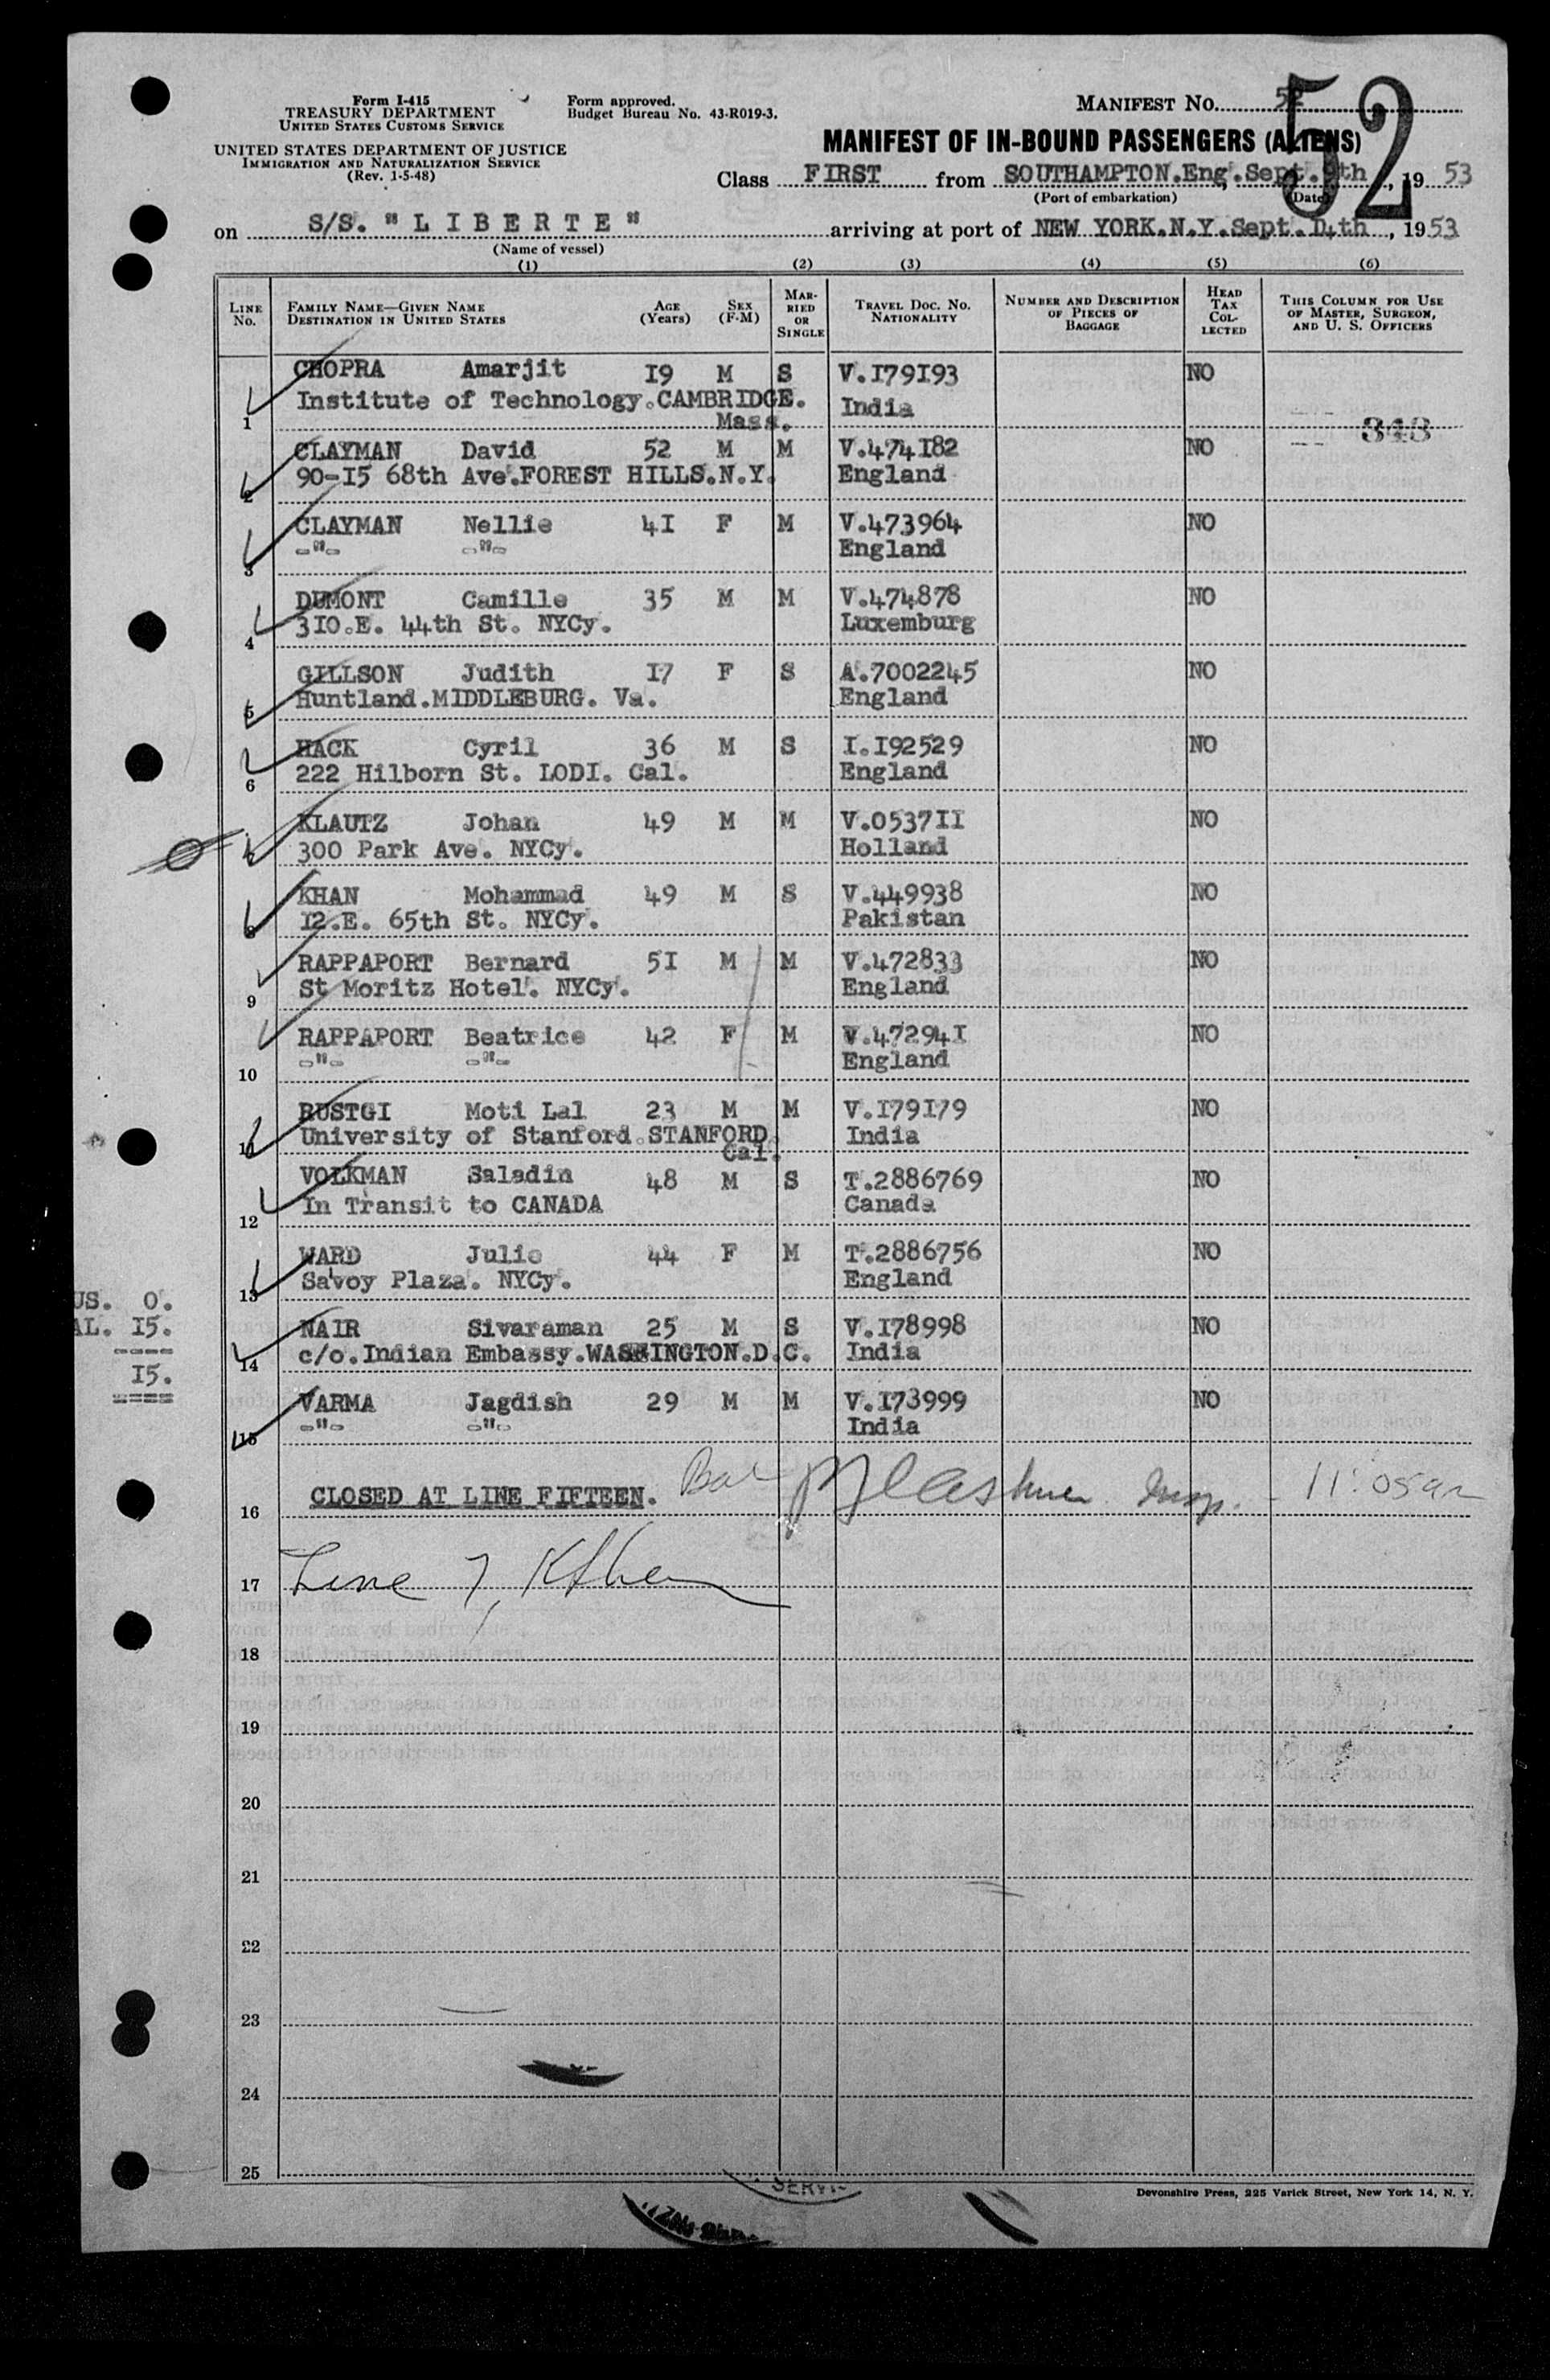 Form I-415
TREASURY DEPARTMENT
UNITED STATES CUSTOMS SERVICE
UNITED STATES DEPARTMENT OF JUSTICE
IMMIGRATION AND NATURALIZATION SERVICE
(Rev. 1-5-48)
Form approved.
Budget Bureau No. 43-R019-3.
MANIFEST No. 52
52
MANIFEST OF IN-BOUND PASSENGERS (ALIENS)
Class FIRST from SOUTHAMPTON.Eng.Sept.9th, 1953
(Port of embarkation) (Date)
on S/S. "LIBERTE" arriving at port of NEW YORK.N.Y.Sept. I4th, 1953
(Name of vessel)
(1) (2) (3) (4) (5) (6)
LINE No. FAMILY NAME—GIVEN NAME DESTINATION IN UNITED STATES AGE (Years) SEX (F-M) MARRIED OR SINGLE TRAVEL DOC. No. NATIONALITY NUMBER AND DESCRIPTION OF PIECES OF BAGGAGE HEAD TAX COLLECTED THIS COLUMN FOR USE OF MASTER, SURGEON, AND U. S. OFFICERS
CHOPRA Amarjit I9 M S V.I79I93 NO
Institute of Technology.CAMBRIDGE. India
1 Mass.
343
CLAYMAN David 52 M M V.474I82 NO
2 90-I5 68th Ave.FOREST HILLS.N.Y. England
CLAYMAN Nellie 4I F M V.473964 NO
3 -"- -"- England
DUMONT Camille 35 M M V.474878 NO
4 3IO.E. 44th St. NYCy. Luxemburg
GILLSON Judith I7 F S A.7002245 NO
5 Huntland.MIDDLEBURG. Va. England
HACK Cyril 36 M S I.I92529 NO
6 222 Hilborn St. LODI. Cal. England
KLAUTZ Johan 49 M M V.0537II NO
7 300 Park Ave. NYCy. Holland
KHAN Mohammad 49 M S V.449938 NO
8 I2.E. 65th St. NYCy. Pakistan
RAPPAPORT Bernard 5I M M V.472833 NO
9 St Moritz Hotel. NYCy. England
RAPPAPORT Beatrice 42 F M V.47294I NO
10 -"- -"- England
RUSTGI Moti Lal 23 M M V.I79I79 NO
11 University of Stanford.STANFORD. India
Cal.
VOLKMAN Saladin 48 M S T.2886769 NO
12 In Transit to CANADA Canada
WARD Julie 44 F M T.2886756 NO
13 Savoy Plaza. NYCy. England
US. 0.
AL. I5.
----
I5.
====
NAIR Sivaraman 25 M S V.I78998 NO
14 c/o.Indian Embassy.WASHINGTON.D.C. India
VARMA Jagdish 29 M M V.I73999 NO
15 -"- -"- India
16 CLOSED AT LINE FIFTEEN. Insp. - 11:05am
17 Line 7,
18
19
20
21
22
23
24
25
SERVI
Devonshire Press, 225 Varick Street, New York 14, N. Y.